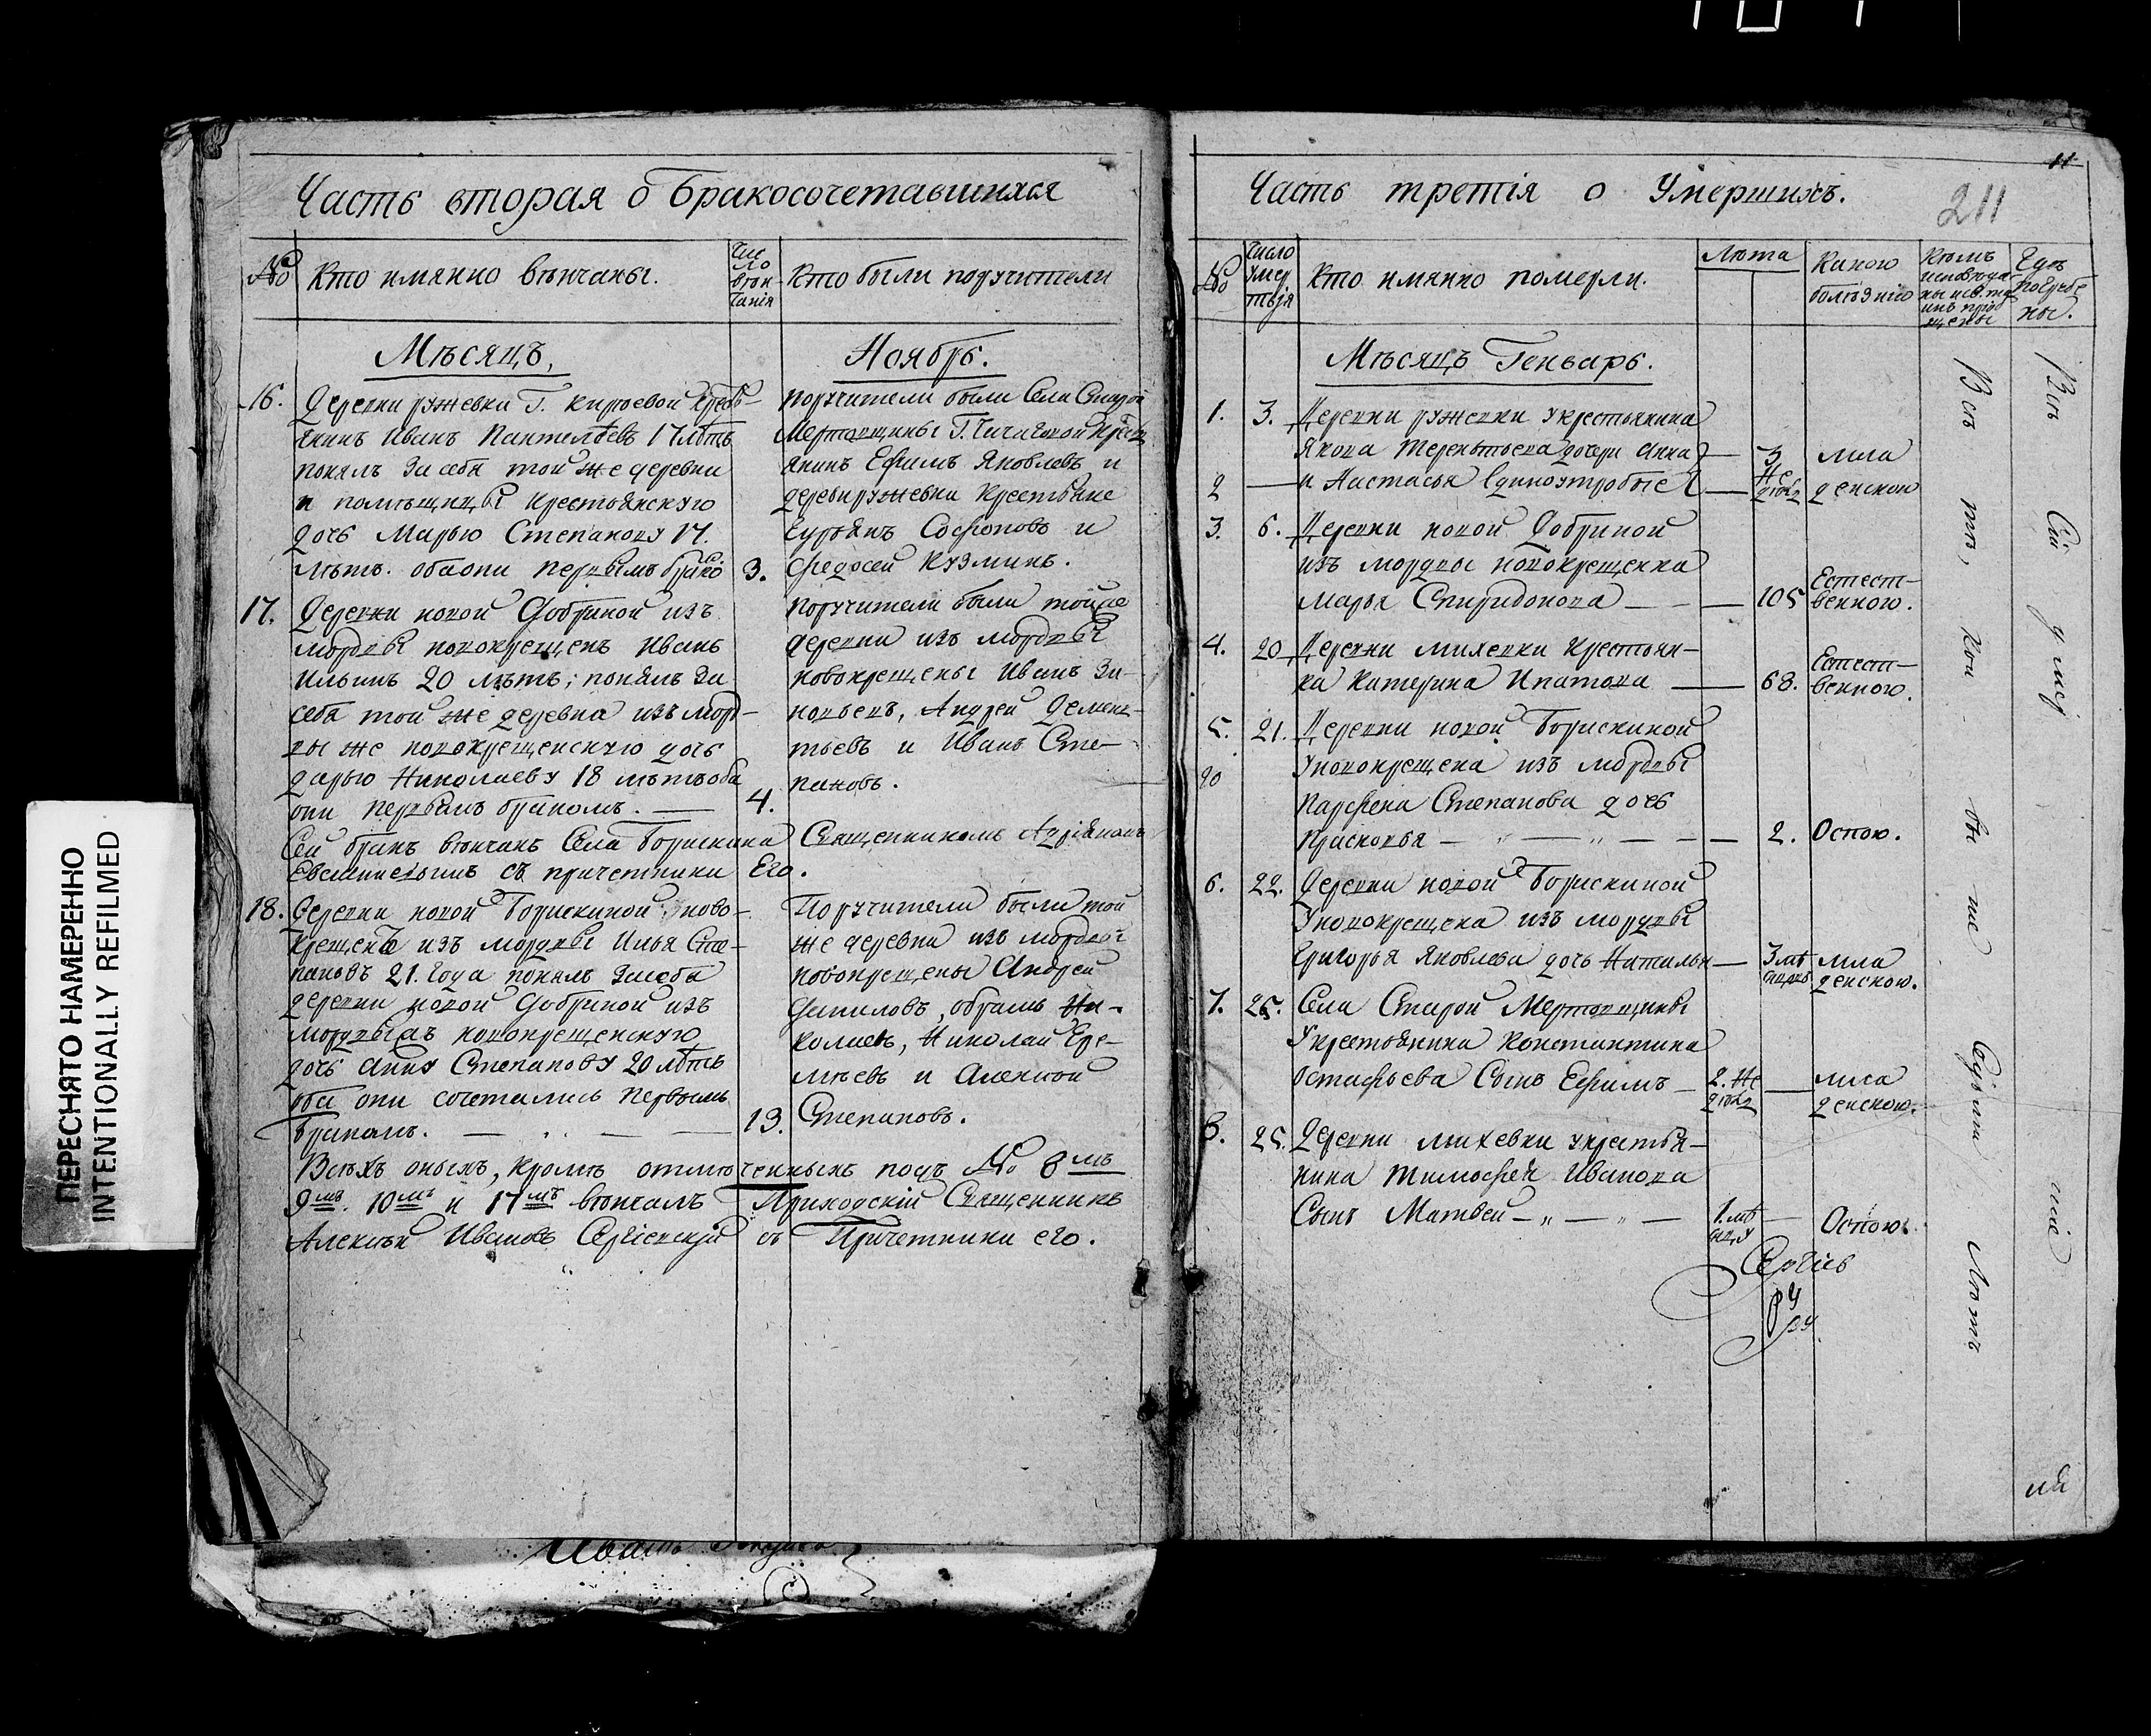 Часть вторая о Бракосочетавшихся
№
Кто имянно венчаны.
Чис
ло
вѣн
чанія
Кто были поручители
Мѣсяцъ,
Ноябрь.
16.
Деревни ружевки Г. Киръевой крестьянинъ Иванъ Пантелѣевъ 17 лѣтъ
понялъ за себя той же деревни
и помѣщицы крестьянскую
дочь Марью Степанову 17.
лѣтъ. оба они первымъ бракомъ
3.
Поручители были Села Старой
Мертовщины Г. Чичаговой крестьянинъ Ефимъ Яковлевъ и
деревни ружевки крестьяне
Гурьянъ Софроновъ и
Федосей Кузминъ.
17.
Деревни новой Добриной изъ
мордвы новокрещенъ Иванъ
Ильинъ 20 лѣтъ; понялъ за
себя той же деревни изъ мордвы же новокрещенскую дочь
Дарью Николаеву 18 лѣтъ оба
они первымъ бракомъ.
4.
Поручители были той же
деревни изъ мордвы
новокрещены Иванъ Зиновьевъ, Андрей Дементьевъ и Иванъ Степановъ.
Сей бракъ вѣнчанъ Села Борискина Священникомъ Андріаномъ
съ причетники Его.
18.
Деревни новой Борискиной новокрещенъ изъ мордвы Илья Степановъ 21. года понялъ за себя
деревни новой Добриной изъ
мордвы новокрещенскую
дочь Анну Степанову 20 лѣтъ
оба они сочетались первымъ
бракомъ.
13.
Поручители были той
же деревни изъ мордвы
новокрещены Андрей
Даниловъ, Абрамъ Николаевъ, Николай Еремѣевъ и Алексѣй
Степановъ.
Всѣхъ оныхъ, кромѣ отмѣченныхъ подъ № 8 мъ
9 мъ. 10 мъ и 17 мъ вѣнчалъ Приходскій Священникъ
Алексѣй Ивановъ Сергіевскій съ Причетники его.
ПЕРЕСНЯТО НАМЕРЕННО
INTENTIONALLY REFILMED
11
211
Часть третія о Умершихъ.
№
Число
умер
твія
Кто имянно померли.
Лѣта
Какою
болѣзнію
Кѣмъ
исповѣда
ны и св. та
инъ прі
щены
Гдѣ
погребе
ны.
Мѣсяцъ Генварь.
1.
3.
Деревни ружевки у крестьянина
Якова Терентьева дочери Анна
2
и Настасья единоутробные
3
не
дѣл
мла
денскою
3.
6.
Деревни новой Добриной
изъ мордвы новокрещенка
Марья Спиридонова
105
Естест-
венною.
4.
20.
Деревни михевки крестьян-
ка Катерина Ипатова
68.
Естест-
венною.
5.
21.
Деревни новой Борискиной
20
У новокрещена изъ мордвы
Парфена Степанова дочь
Прасковья
2.
Оспою.
6.
22.
Деревни новой Борискиной
У новокрещена изъ мордвы
Григорья Яковлева дочь Наталья
3 мѣ
сяцовъ
мла
денскою.
7.
25.
Села Старой Мертовщины
У крестьянина Константина
Остафьева сынъ Ефимъ
2. не
дѣл
мла
денскою.
8.
25.
Деревни михевки у крестья-
нина Тимофея Иванова
Сынъ Матвей
1. мѣ
сяцъ
Оспою.